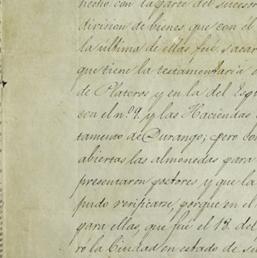 hecho con la parte del sucesor
division de bienes, que con el
la ultima de ellas fué, sacar
que tiene la testamentaria
de Plateros y en la del Esp
con el nº 9. y las Haciendas
tamento de Durango; pero
abiertas las almonedas para
presentaron postores y que la
pudo verificarse, porque en el
para ellas, que fué el 13. del
ró la Ciudad en estado de si